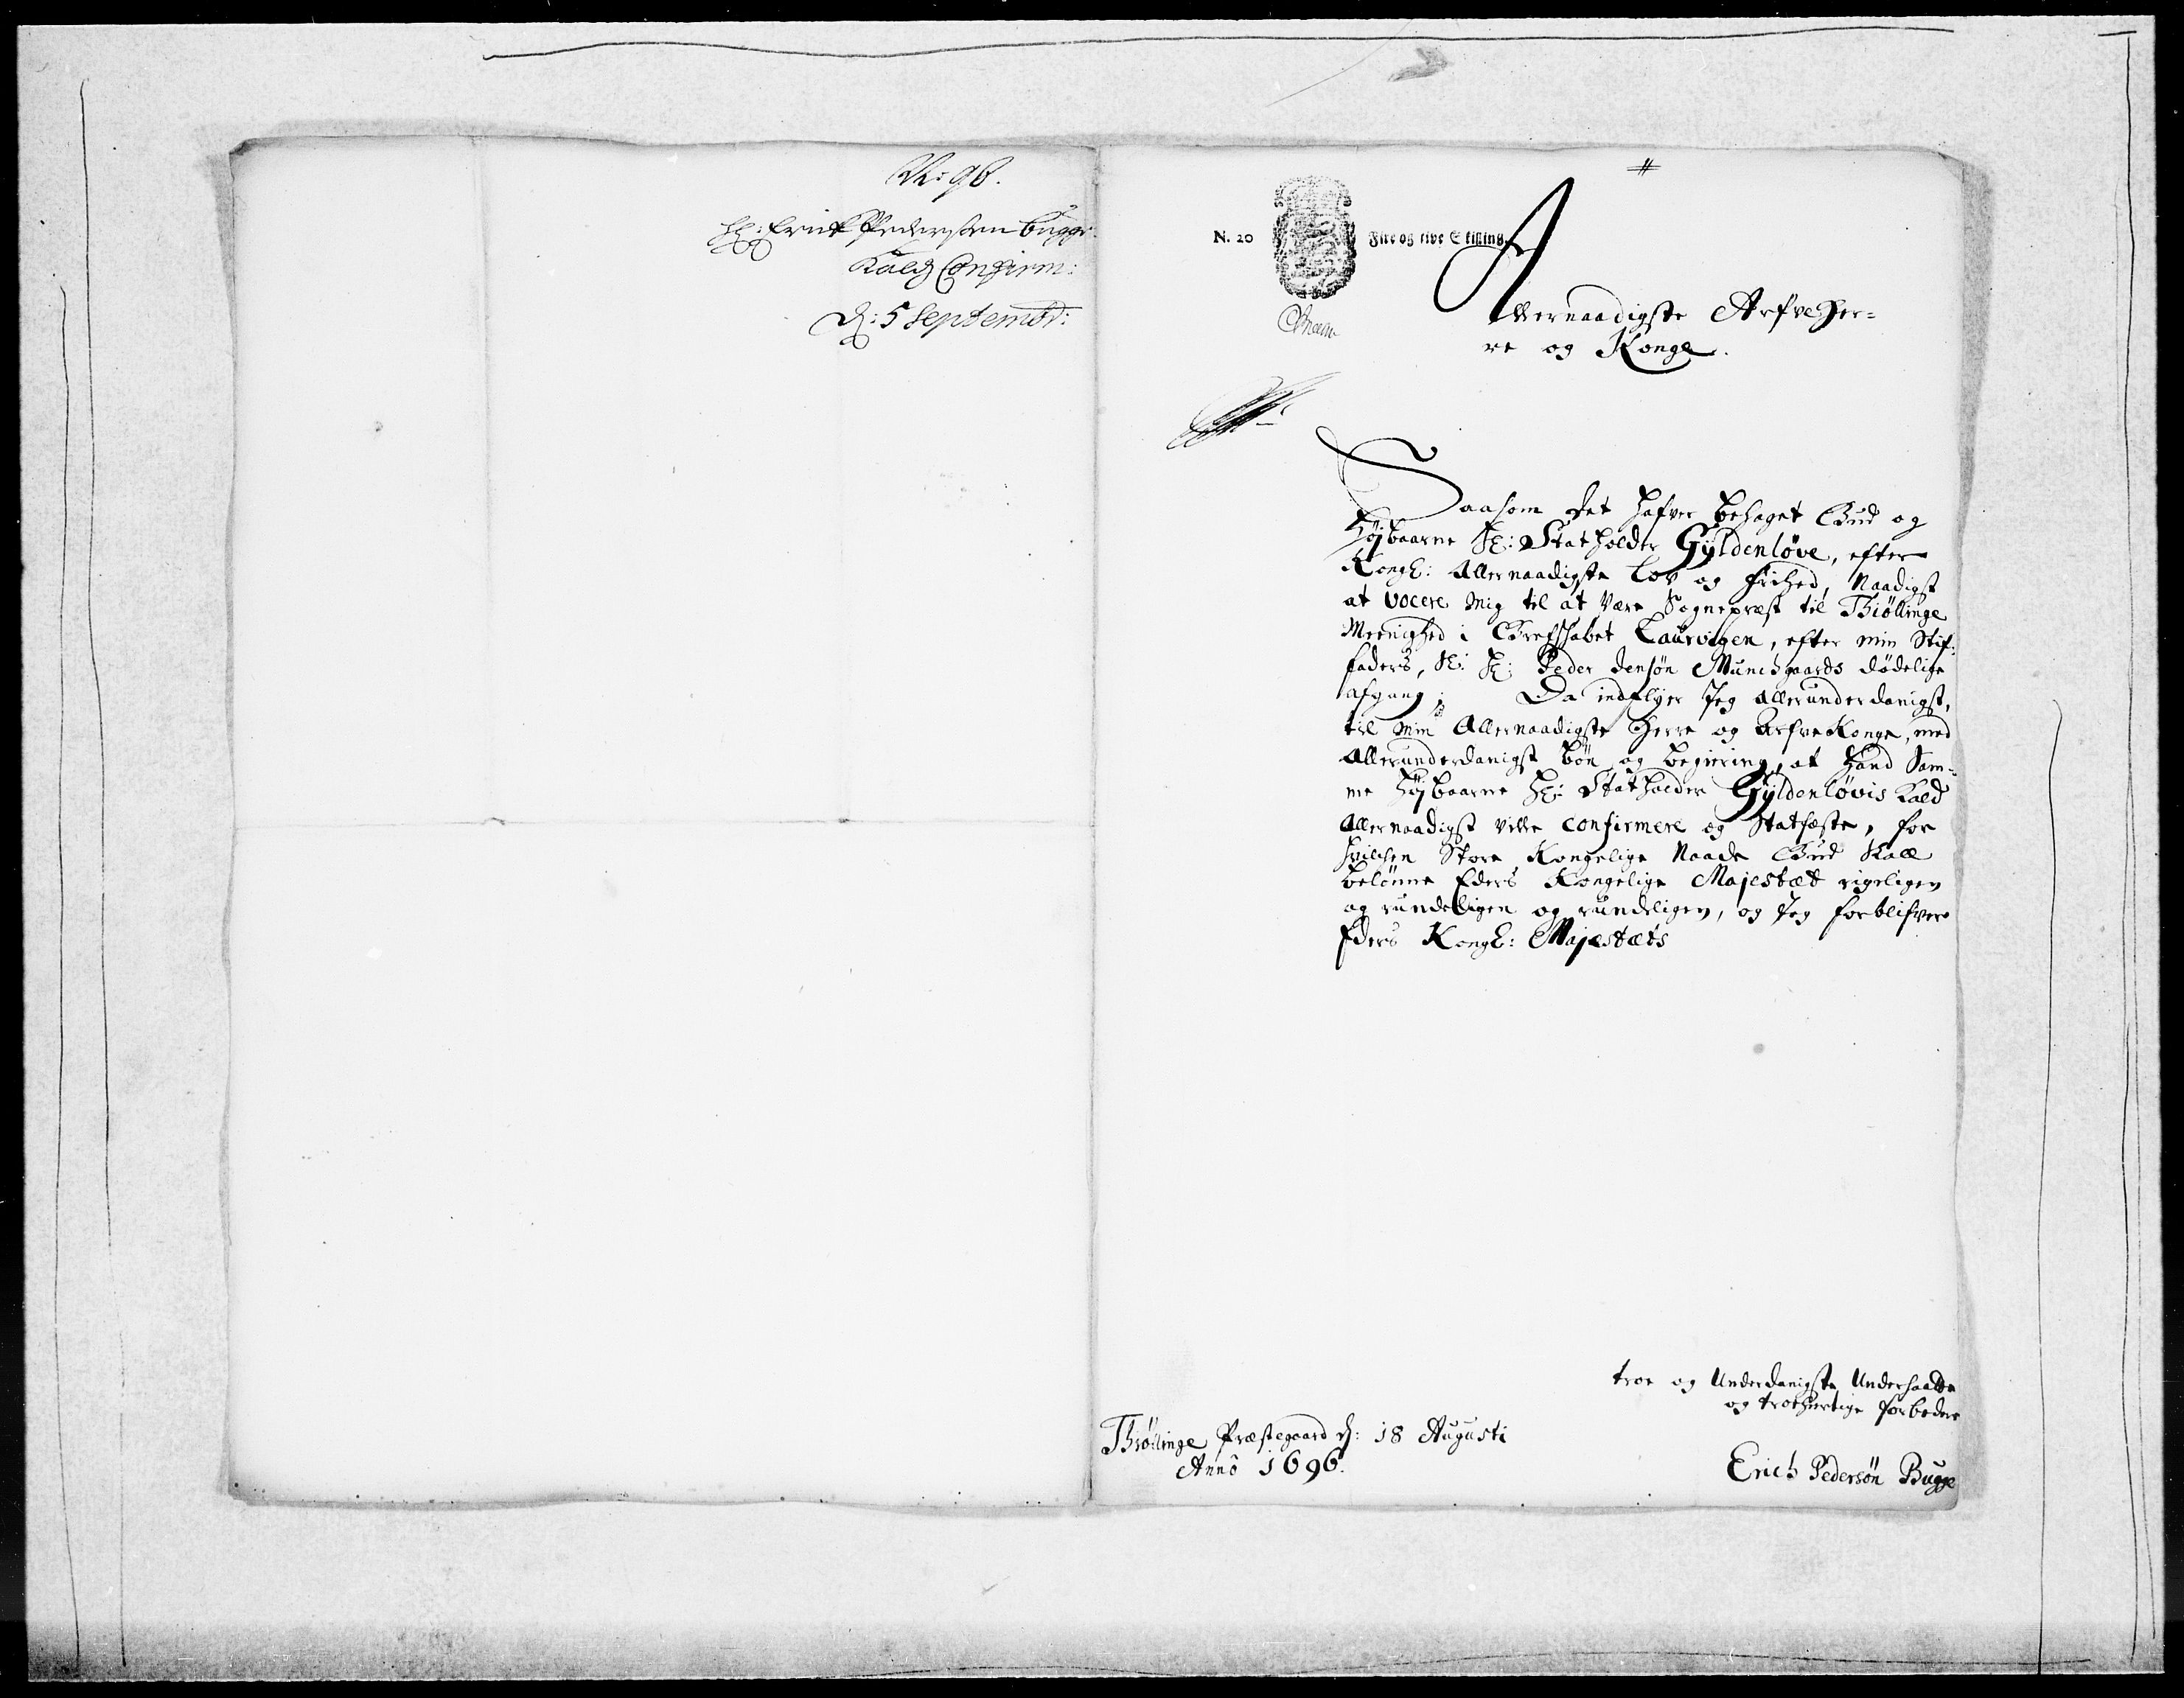 No: 98.
Hr: Erick Pedersen Bugge
Kalds Confirm:
d: 5 Septembr:
N. 20 Fire og tive Skilling
Allernaadigste Arfveher=
re og Konge.
Saasom det hafver behaget Gud og
Høÿbaarne Hr: Statholder Gÿldenløve, efter
Kongl: Allernaadigste lov og frihed, Naadigst
at vocere mig til at være Sognepræst til Thiøllinge
Meenighed i Grefskabet Laurvigen, efter min Stif=
faders, Sl: Hr: Peder Jensøn Munchgaards dødelige
afgang; Da indflyer Jeg allerunderdanigst,
til min Allernaadigste Herre og ArfveKonge, med
Allerunderdanigst bøn og begiering, at Hand Sam=
me Høÿbaarne Hr: Statholder Gÿldenløvis Kald
Allernaadigst ville confirmere og Statfæste, for
hvilchen Store Kongelige Naade Gud Skall
belønne Eders Kongelige Majestæt rigeligen
og rundeligen og rundeligen, og Jeg forblifver
Eders Kongl: Majestæts
troe og Underdanigste Undersaatte
og troehiertige forbeder
Thiøllinge Præstegaard d: 18 Augusti
Anno 1696.
Erich Pedersøn Bugge